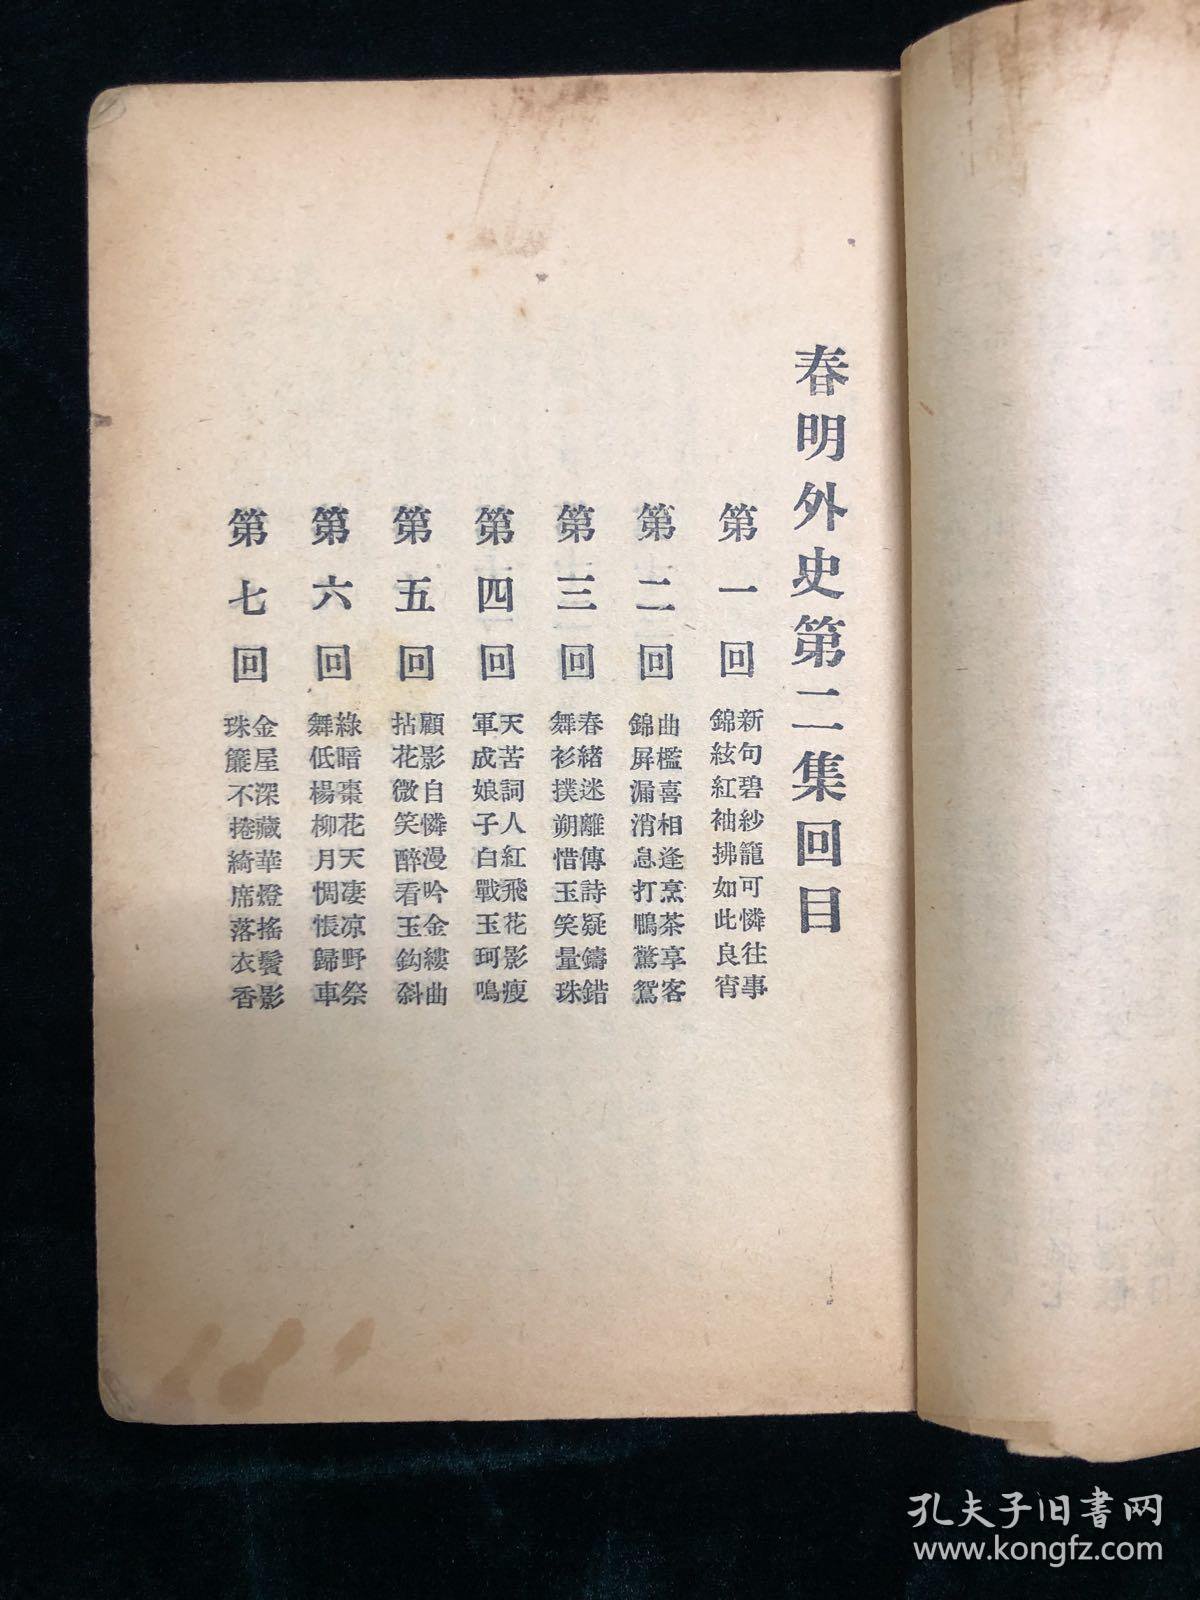 春明外史第二集回目
第一回
新句碧紗籠可憐往事
錦絃紅袖拂如此良宵
第二回
曲檻喜相逢烹茶享客
錦屛漏消息打鴨驚鴛
第三回
春緒迷離傳詩疑鑄錯
舞衫撲朔惜玉笑量珠
第四回
天苦詞人紅飛花影瘦
軍成娘子白戰玉珂鳴
第五回
顧影自憐漫吟金縷曲
拈花微笑醉看玉鈎斜
第六回
綠暗棗花天凄凉野祭
舞低楊柳月惆悵歸車
第七回
金屋深藏華燈搖鬢影
珠簾不捲綺席落衣香
孔夫子旧书网
www.kongfz.com